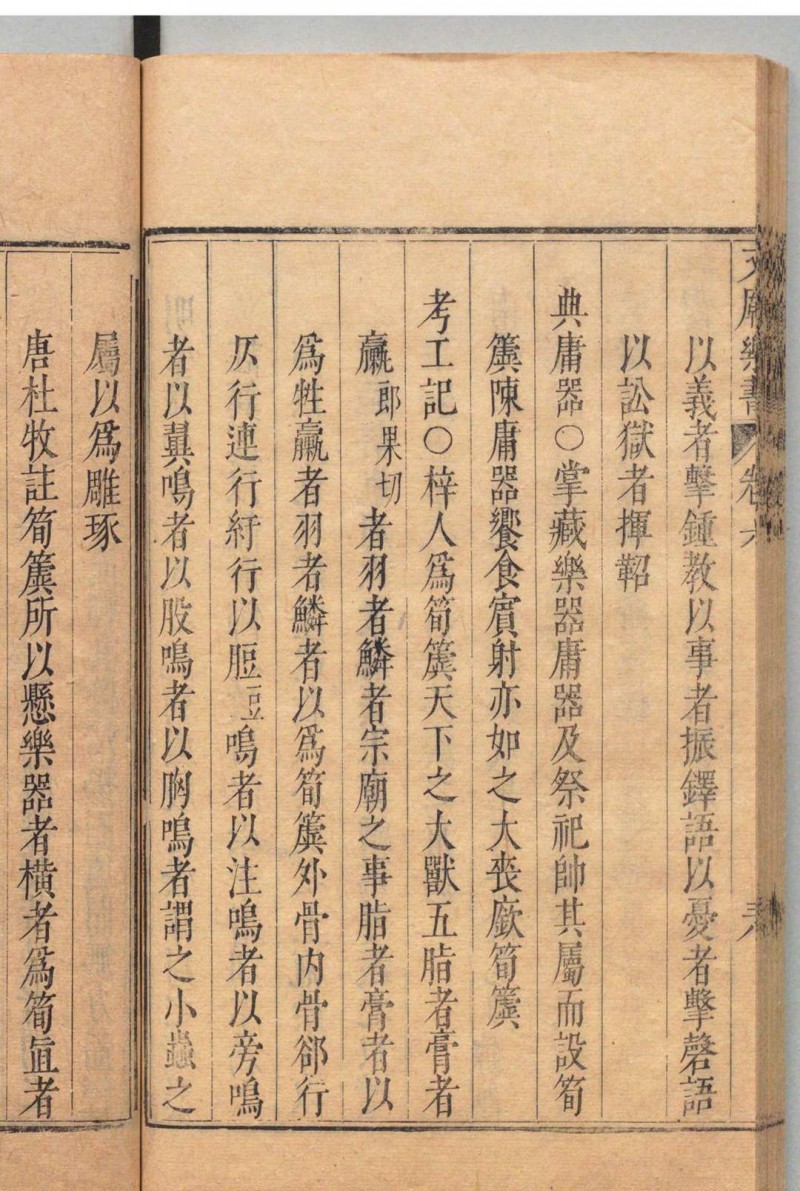 文廟樂書 卷六
以義者擊鍾教以事者振鐸語以憂者擊磬語
以訟獄者揮鞀
典庸器○掌藏樂器庸器及祭祀帥其屬而設筍
簴陳庸器饗食賓射亦如之大喪廞筍簴
考工記○梓人爲筍簴天下之大獸五脂者膏者
臝郎果切者羽者鱗者宗廟之事脂者膏者以
爲牲臝者羽者鱗者以爲筍簴外骨内骨郤行
仄行連行紆行以脰豆鳴者以注鳴者以旁鳴
者以翼鳴者以股鳴者以胸鳴者謂之小蟲之
屬以爲雕琢
唐杜牧註筍簴所以懸樂器者橫者爲筍直者